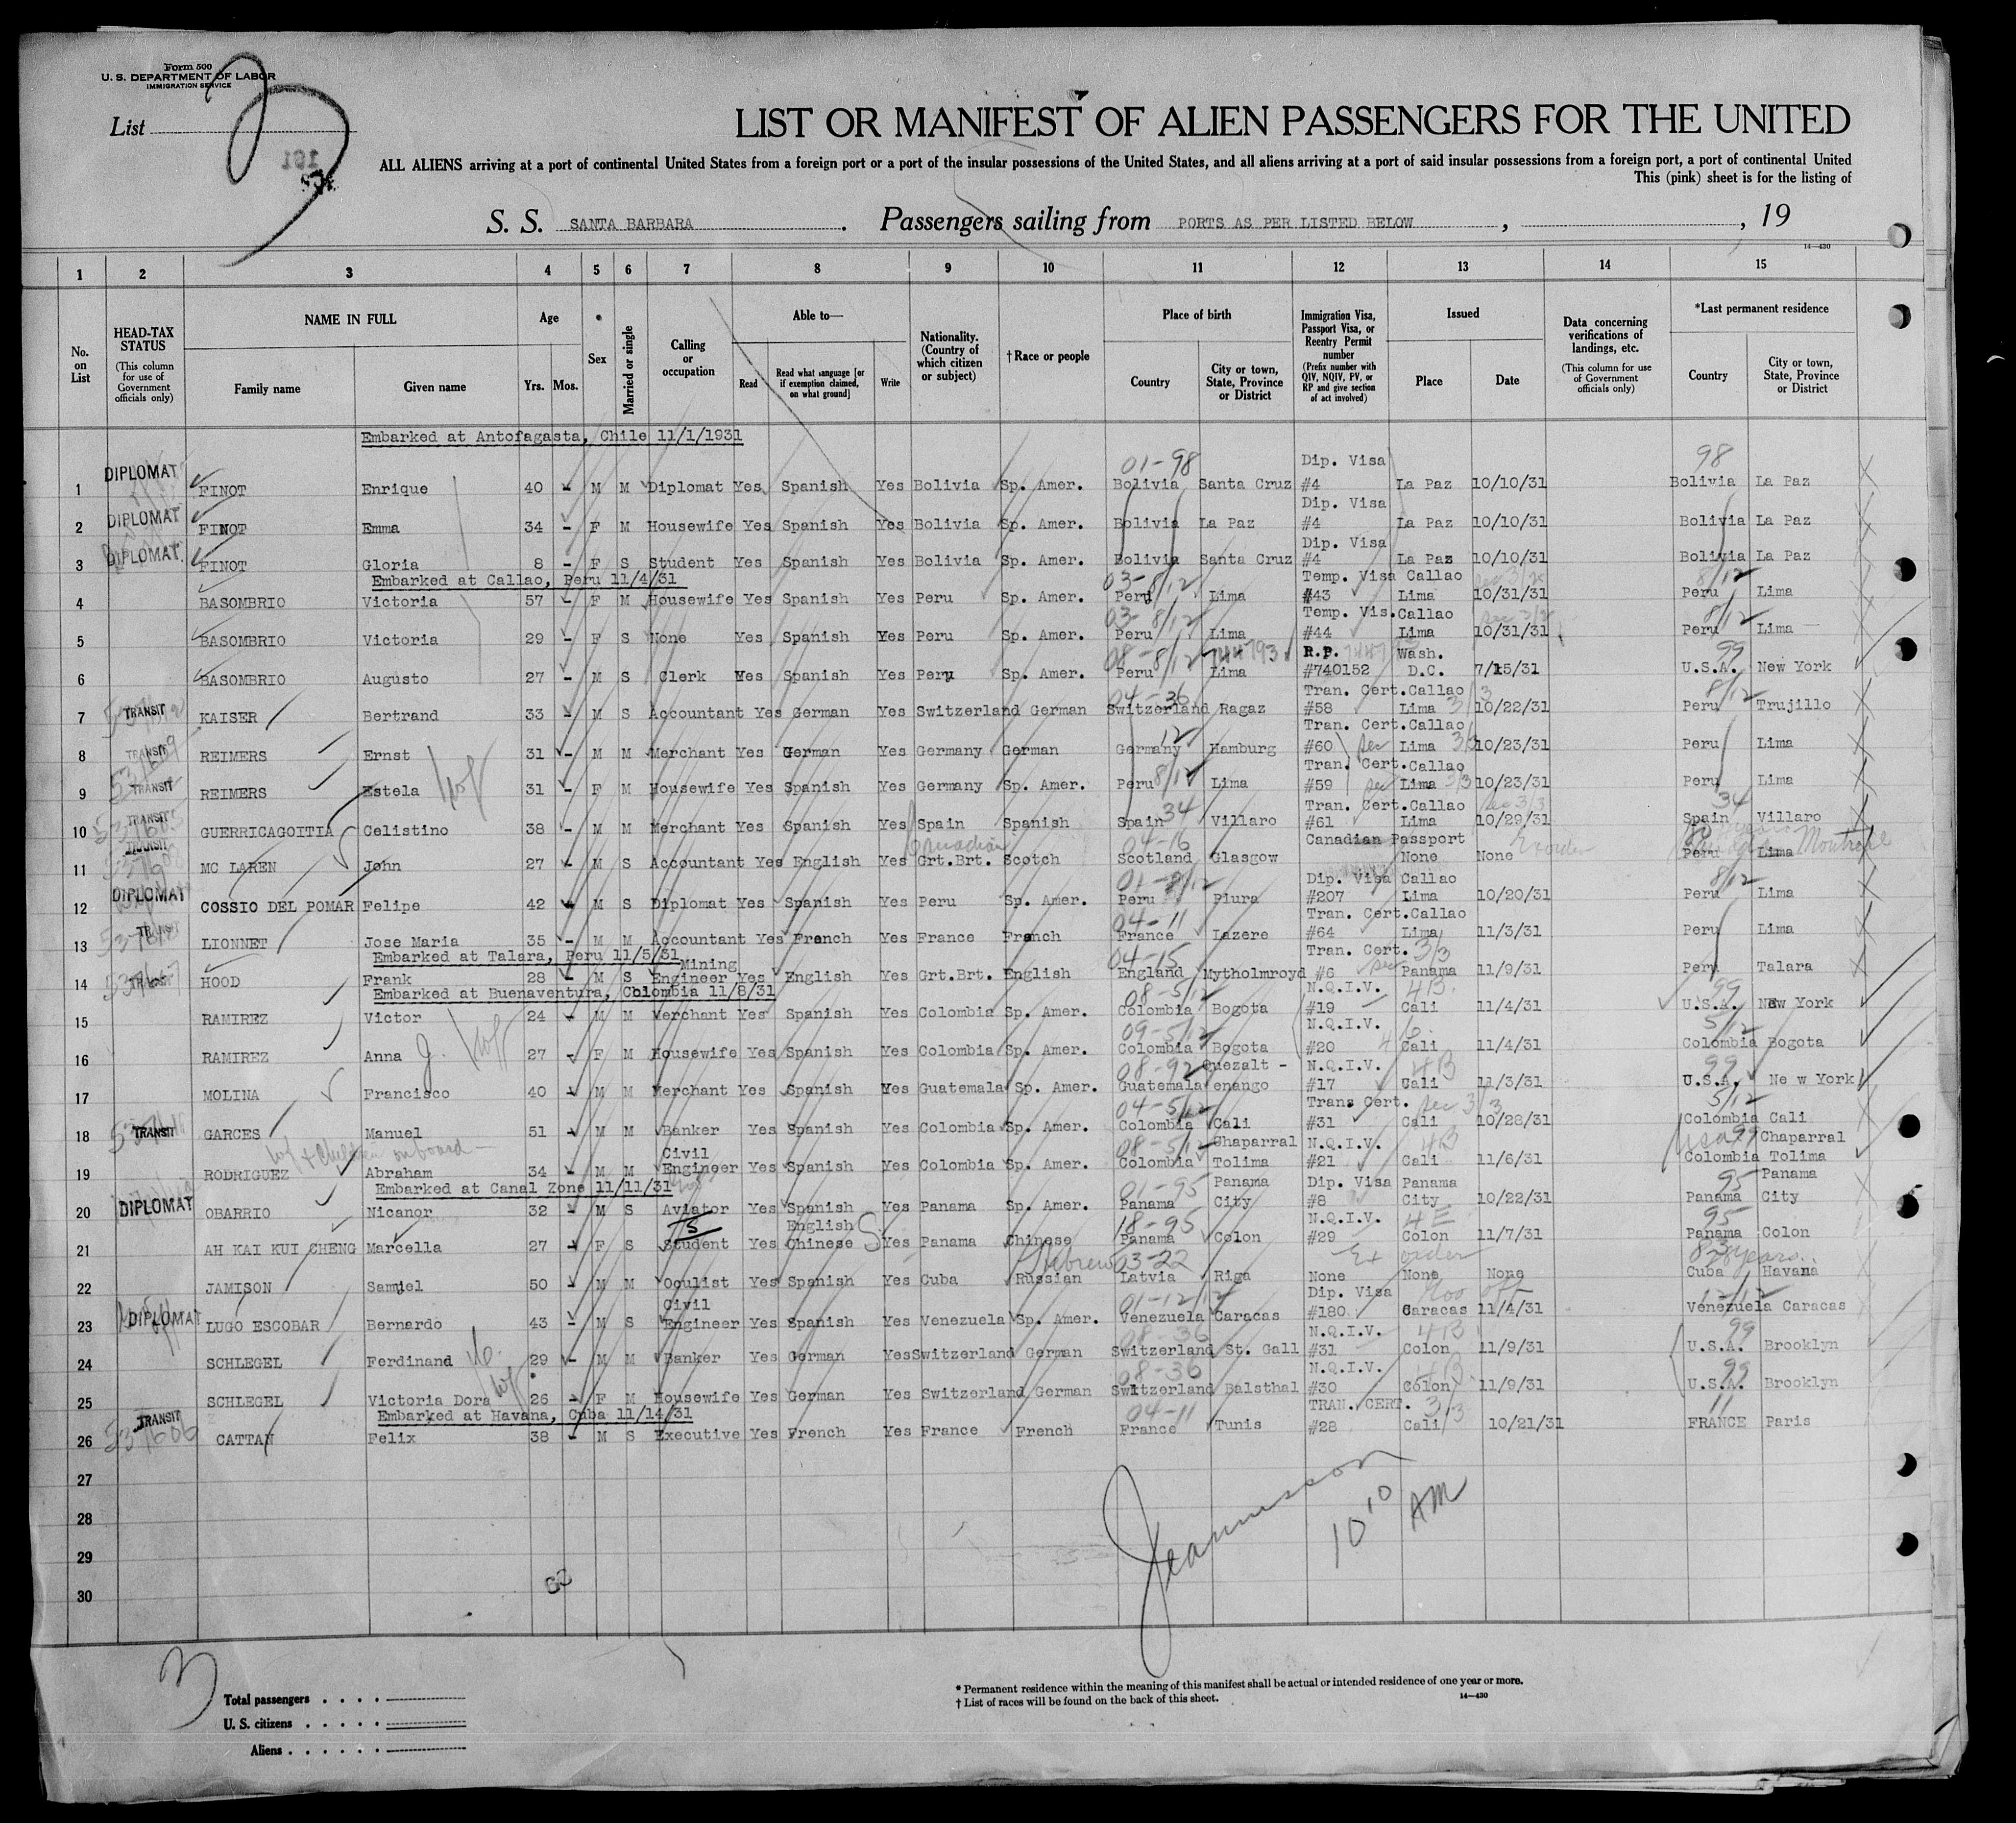 Form 500
U. S. DEPARTMENT OF LABOR
IMMIGRATION SERVICE
List
LIST OR MANIFEST OF ALIEN PASSENGERS FOR THE UNITED
ALL ALIENS arriving at a port of continental United States from a foreign port or a port of the insular possessions of the United States, and all aliens arriving at a port of said insular possessions from a foreign port, a port of continental United
This (pink) sheet is for the listing of
S. S. SANTA BARBARA . Passengers sailing from PORTS AS PER LISTED BELOW , , 19
14—430
1 2 3 4 5 6 7 8 9 10 11 12 13 14 15
No. on List
HEAD-TAX STATUS (This column for use of Government officials only)
NAME IN FULL Family name Given name
Age Yrs. Mos.
Sex
Married or single
Calling or occupation
Able to— Read Read what language [or if exemption claimed, on what ground] Write
Nationality. (Country of which citizen or subject)
† Race or people
Place of birth Country City or town, State, Province or District
Immigration Visa, Passport Visa, or Reentry Permit number (Prefix number with QIV, NQIV, PV, or RP and give section of act involved)
Issued Place Date
Data concerning verifications of landings, etc. (This column for use of Government officials only)
*Last permanent residence Country City or town, State, Province or District
Embarked at Antofagasta, Chile 11/1/1931
DIPLOMAT 01-98 Dip. Visa 98
1 FINOT Enrique 40 - M M Diplomat Yes Spanish Yes Bolivia Sp. Amer. Bolivia Santa Cruz #4 La Paz 10/10/31 Bolivia La Paz
DIPLOMAT Dip. Visa
2 FINOT Emma 34 - F M Housewife Yes Spanish Yes Bolivia Sp. Amer. Bolivia La Paz #4 La Paz 10/10/31 Bolivia La Paz
DIPLOMAT Dip. Visa
3 FINOT Gloria 8 - F S Student Yes Spanish Yes Bolivia Sp. Amer. Bolivia Santa Cruz #4 La Paz 10/10/31 Bolivia La Paz
Embarked at Callao, Peru 11/4/31 03-8/12 Temp. Visa Callao 8/12
4 BASOMBRIO Victoria 57 - F M Housewife Yes Spanish Yes Peru Sp. Amer. Peru Lima #43 Lima 10/31/31 Peru Lima
03-8/12 Temp. Vis.Callao 8/12
5 BASOMBRIO Victoria 29 - F S None Yes Spanish Yes Peru Sp. Amer. Peru Lima #44 Lima 10/31/31 Peru Lima
08-8/12 R.P. Wash. 99
6 BASOMBRIO Augusto 27 - M S Clerk Yes Spanish Yes Peru Sp. Amer. Peru Lima #740152 D.C. 7/15/31 U.S.A. New York
TRANSIT 04-36 Tran. Cert.Callao 8/12
7 KAISER Bertrand 33 - M S Accountant Yes German Yes Switzerland German Switzerland Ragaz #58 Lima 10/22/31 Peru Trujillo
TRANSIT 12 Tran. Cert.Callao
8 REIMERS Ernst 31 - M M Merchant Yes German Yes Germany German Germany Hamburg #60 Lima 10/23/31 Peru Lima
TRANSIT 8/12 Tran. Cert.Callao
9 REIMERS Estela 31 - F M Housewife Yes Spanish Yes Germany Sp. Amer. Peru Lima #59 Lima 10/23/31 Peru Lima
TRANSIT 34 Tran. Cert.Callao 34
10 GUERRICAGOITIA Celistino 38 - M M Merchant Yes Spanish Yes Spain Spanish Spain Villaro #61 Lima 10/29/31 Spain Villaro
TRANSIT Canadian 04-16 Canadian Passport Montreal
11 MC LAREN John 27 - M S Accountant Yes English Yes Grt.Brt. Scotch Scotland Glasgow None None Peru Lima
DIPLOMAT 01-8/12 Dip. Visa Callao 8/12
12 COSSIO DEL POMAR Felipe 42 - M S Diplomat Yes Spanish Yes Peru Sp. Amer. Peru Piura #207 Lima 10/20/31 Peru Lima
04-11 Tran. Cert.Callao
13 LIONNET Jose Maria 35 - M M Accountant Yes French Yes France French France Lazere #64 Lima 11/3/31 Peru Lima
Embarked at Talara, Peru 11/5/31 Mining 04-15 Tran. Cert. 3/3
14 TRANSIT HOOD Frank 28 - M S Engineer Yes English Yes Grt.Brt. English England Mytholmroyd #6 Panama 11/9/31 Peru Talara
Embarked at Buenaventura, Colombia 11/8/31 08-5/12 N.Q.I.V. 4B. 99
15 RAMIREZ Victor 24 - M M Merchant Yes Spanish Yes Colombia Sp. Amer. Colombia Bogota #19 Cali 11/4/31 U.S.A. New York
09-5/12 N.Q.I.V. 5/12
16 RAMIREZ Anna J. 27 - F M Housewife Yes Spanish Yes Colombia Sp. Amer. Colombia Bogota #20 Cali 11/4/31 Colombia Bogota
08-92 Quezalt - N.Q.I.V. 4B 99
17 MOLINA Francisco 40 - M M Merchant Yes Spanish Yes Guatemala Sp. Amer. Guatemala enango #17 Cali 11/3/31 U.S.A. Ne w York
04-5/12 Trans Cert. sec 3/3 5/12
18 TRANSIT GARCES Manuel 51 - M M Banker Yes Spanish Yes Colombia Sp. Amer. Colombia Cali #31 Cali 10/28/31 Colombia Cali
Civil 08-5/12 Chaparral N.Q.I.V. 4B USA 99 Chaparral
19 RODRIGUEZ Abraham 34 - M M Engineer Yes Spanish Yes Colombia Sp. Amer. Colombia Tolima #21 Cali 11/6/31 Colombia Tolima
Embarked at Canal Zone 11/11/31 01-95 Panama Dip. Visa Panama 95 Panama
20 DIPLOMAT OBARRIO Nicanor 32 - M S Aviator Yes Spanish Yes Panama Sp. Amer. Panama City #8 City 10/22/31 Panama City
English 18-95 N.Q.I.V. 4E 95
21 AH KAI KUI CHENG Marcella 27 - F S Student Yes Chinese Yes Panama Chinese Panama Colon #29 Colon 11/7/31 Panama Colon
Hebrew 03-22 Ex order years
22 JAMISON Samuel 50 - M M Oculist Yes Spanish Yes Cuba Russian Latvia Riga None None None Cuba Havana
DIPLOMAT Civil 01-12/12 Dip. Visa 12/12
23 LUGO ESCOBAR Bernardo 43 - M S Engineer Yes Spanish Yes Venezuela Sp. Amer. Venezuela Caracas #180 Caracas 11/4/31 Venezuela Caracas
08-36 N.Q.I.V. 4B 99
24 SCHLEGEL Ferdinand 29 - M M Banker Yes German Yes Switzerland German Switzerland St. Gall #31 Colon 11/9/31 U.S.A. Brooklyn
08-36 N.Q.I.V. 4B 99
25 SCHLEGEL Victoria Dora 26 - F M Housewife Yes German Yes Switzerland German Switzerland Balsthal #30 Colon 11/9/31 U.S.A. Brooklyn
TRANSIT Embarked at Havana, Cuba 11/14/31 04-11 TRAN. CERT. 3/3 11
26 CATTAN Felix 38 - M S Executive Yes French Yes France French France Tunis #28 Cali 10/21/31 FRANCE Paris
27
28
29
30
10 10 AM
Total passengers . . . .
U. S. citizens . . . . .
Aliens . . . . . .
* Permanent residence within the meaning of this manifest shall be actual or intended residence of one year or more.
† List of races will be found on the back of this sheet.
14—430